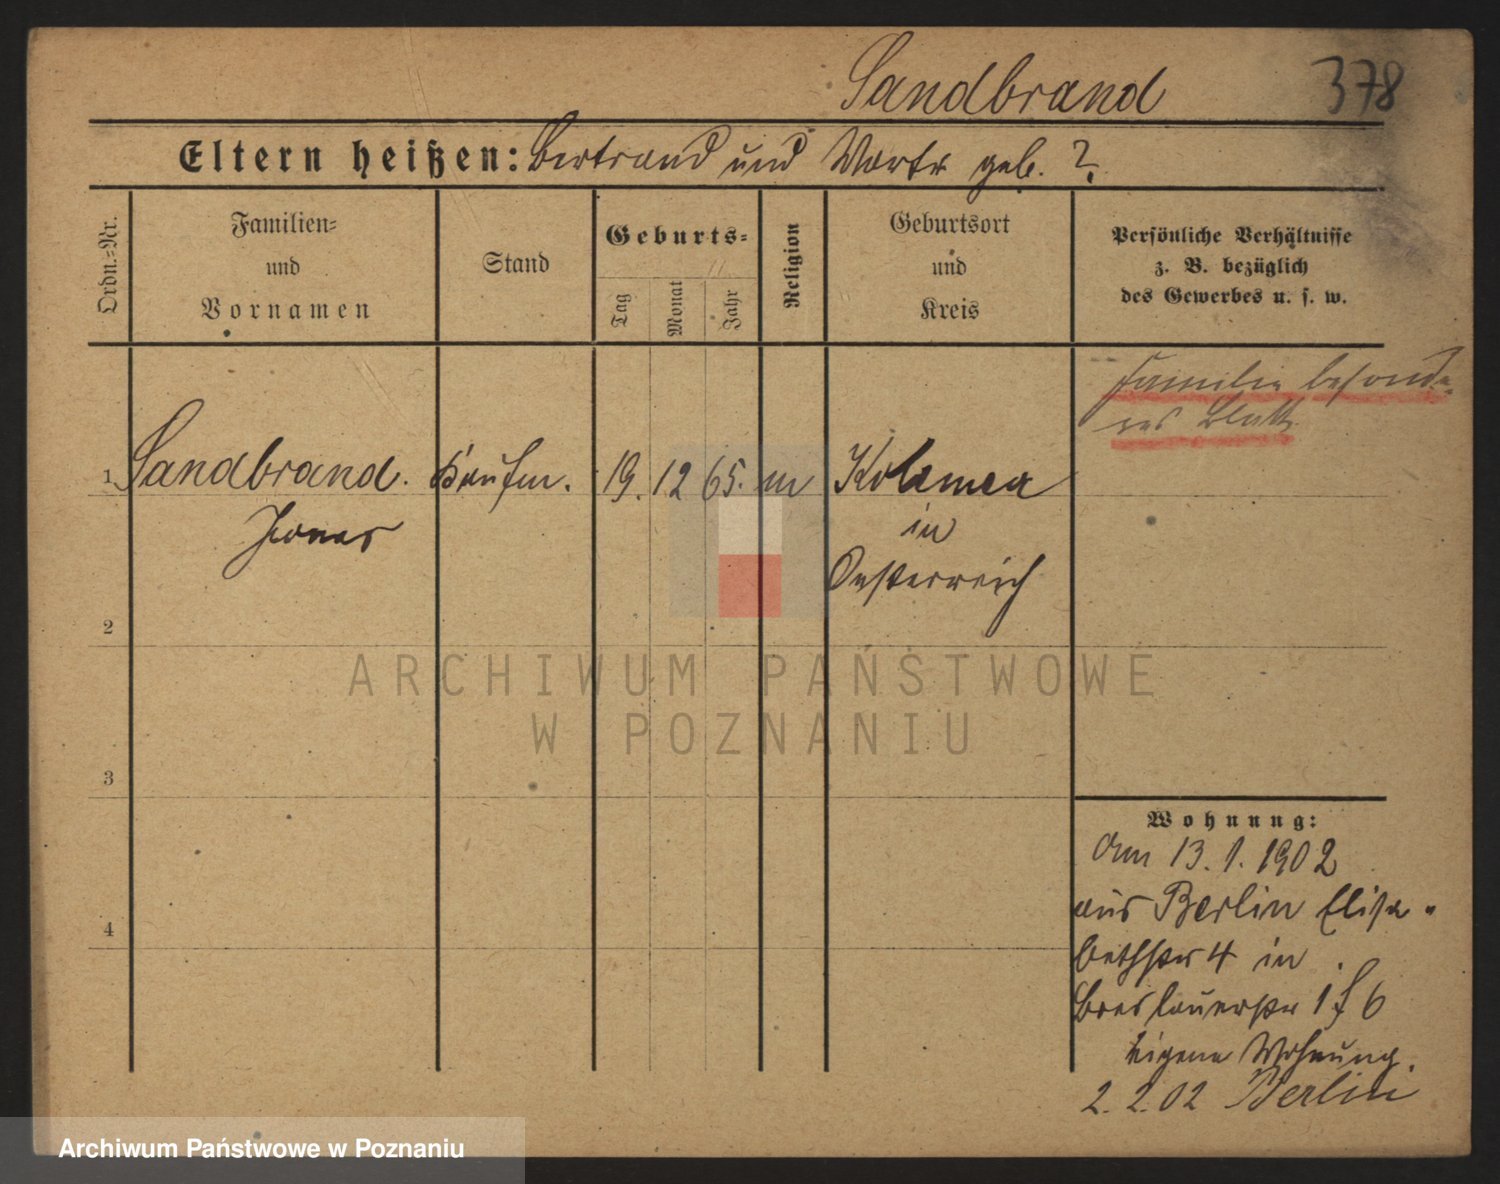 Sandbrand 378
Eltern heißen: Bertrand und Marte geb. ?
Ordn.-Nr.
Familien-
und
Vornamen
Stand
Geburts-
Tag
Monat
Jahr
Religion
Geburtsort
und
Kreis
Persönliche Verhältnisse
z. B. bezüglich
des Gewerbes u. s. w.
Familie besonde-
res Blatt
1 Sandbrand. Kaufm. 19. 12 65. m Kolomea
Jonas in
Oesterreich
2
3
4
ARCHIWUM PAŃSTWOWE
W POZNANIU
Wohnung:
Am 13. 1. 1902
aus Berlin Elisa-
bethstr 4 in
Breslauerstr 1 f 6
eigene Wohnung.
2. 2. 02 Berlin
Archiwum Państwowe w Poznaniu